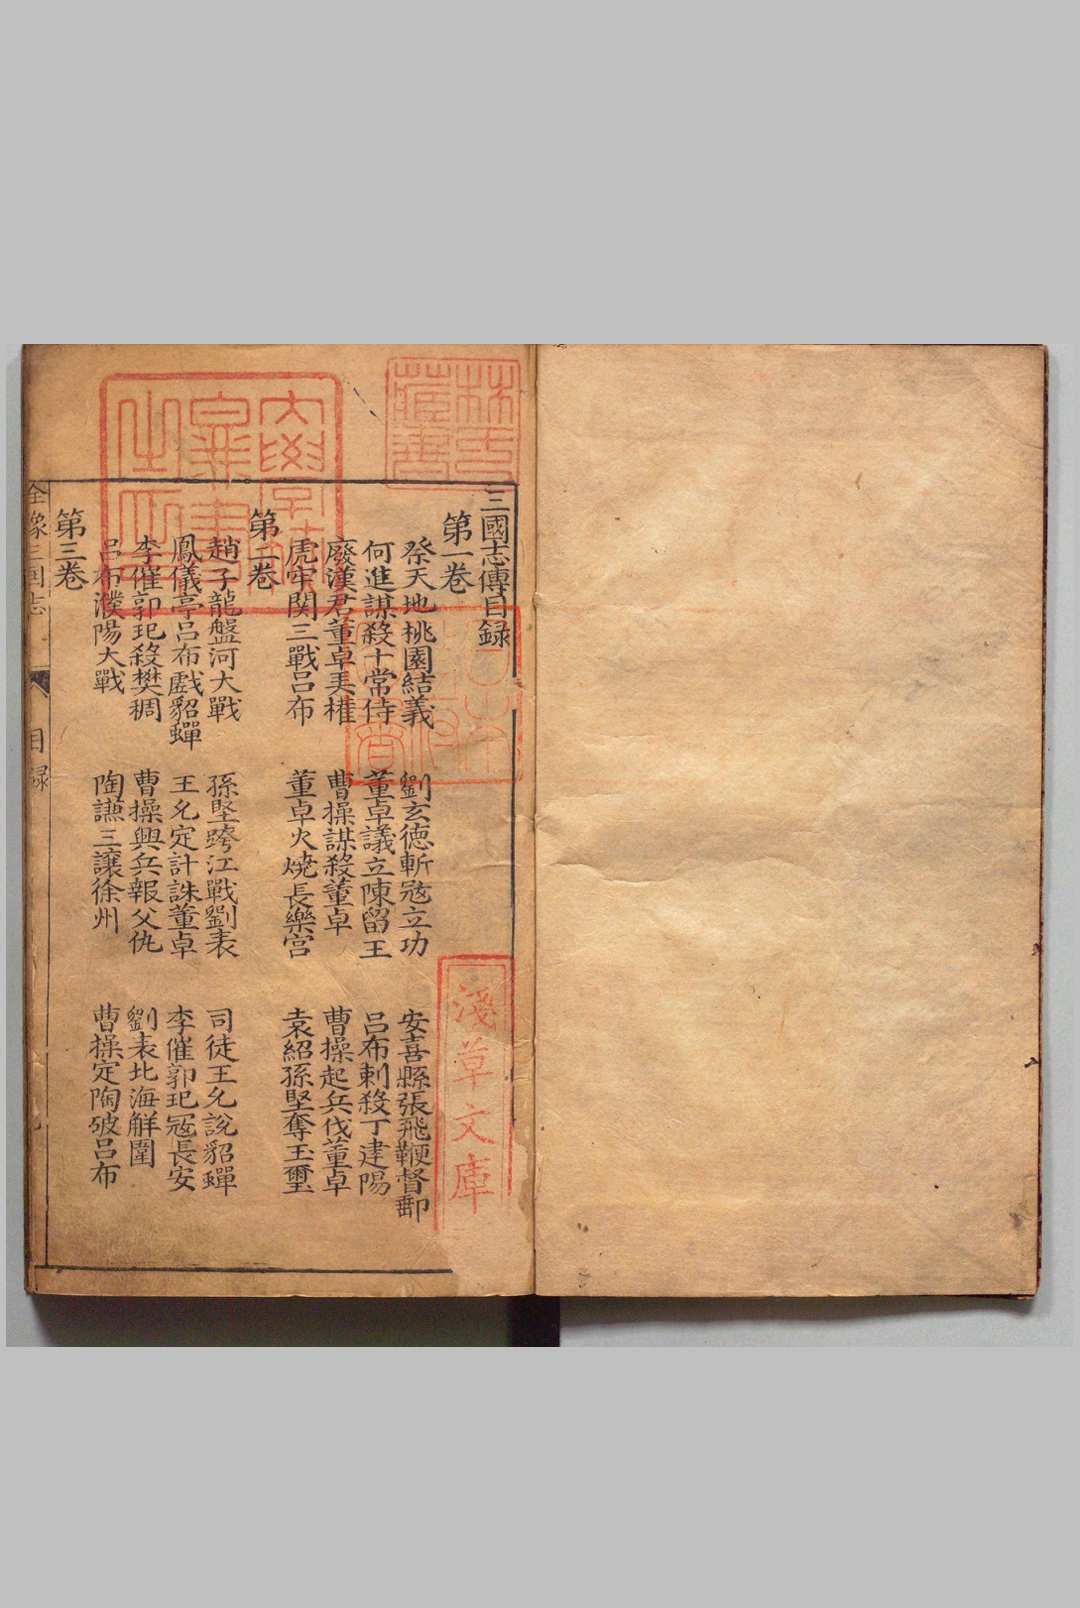 三國志傳目録
第一卷
祭天地桃園結義　劉玄德斬寇立功　安喜縣張飛鞭督郵
何進謀殺十常侍　董卓議立陳留王　呂布刺殺丁建陽
廢漢君董卓弄權　曹操謀殺董卓　曹操起兵伐董卓
虎牢関三戰呂布　董卓火燒長樂宫　袁紹孫堅奪玉璽
第二卷
趙子龍盤河大戰　孫堅跨江戰劉表　司徒王允說貂蟬
鳳儀亭呂布戲貂蟬　王允定計誅董卓　李傕郭汜寇長安
李傕郭汜殺樊稠　曹操興兵報父仇　劉表北海解圍
呂布濮陽大戰　陶謙三讓徐州　曹操定陶破呂布
第三卷
全像三国志　目録
林氏藏書
淺草文庫